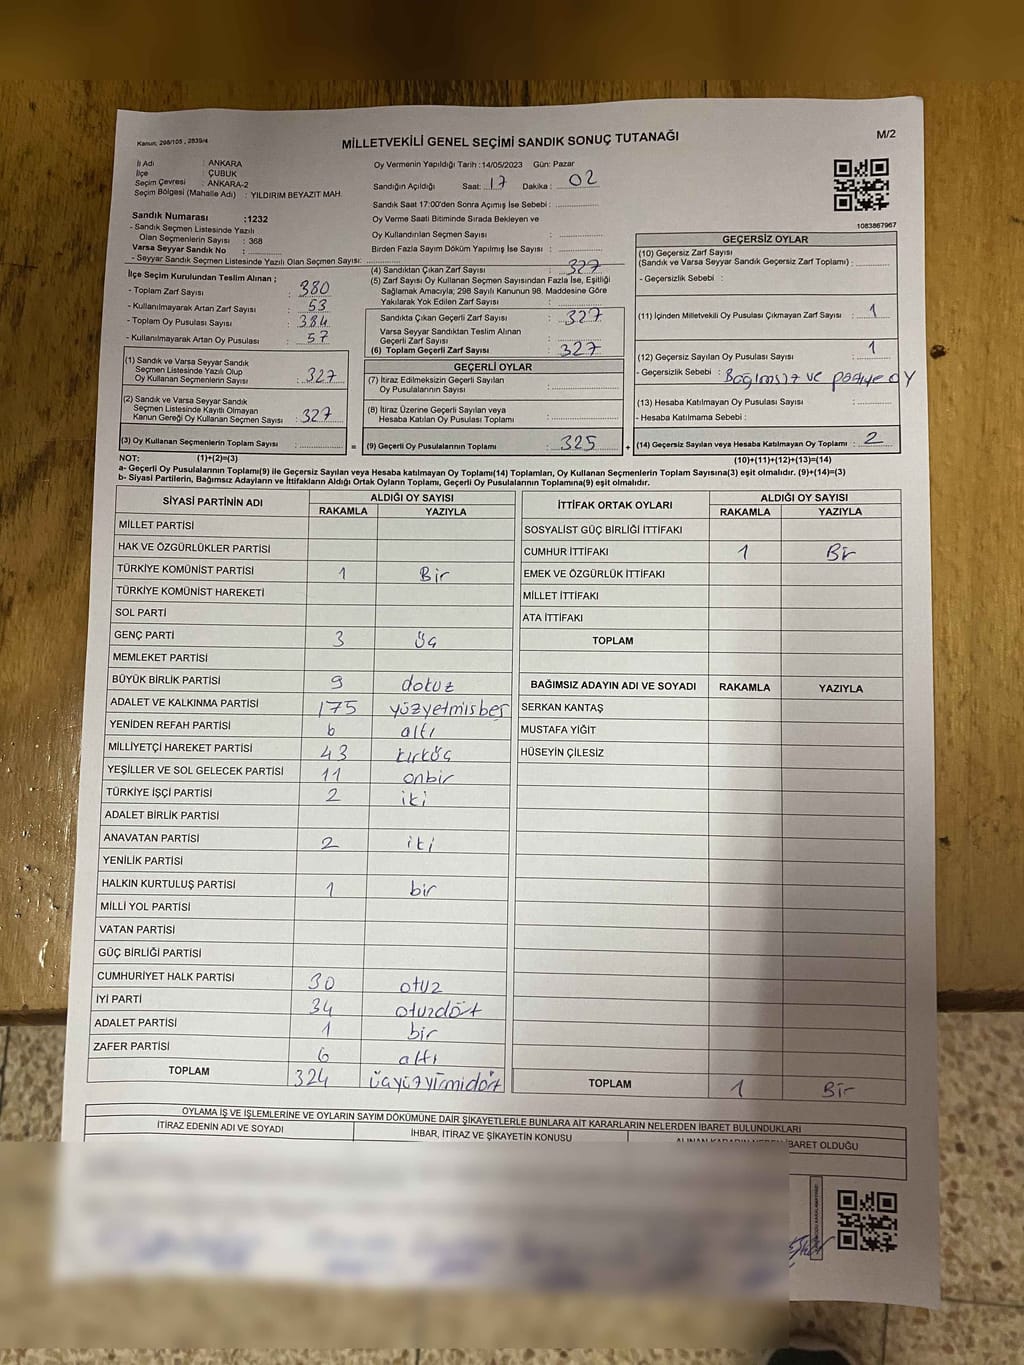 Kanun; 298/105 , 2839/4
MİLLETVEKİLİ GENEL SEÇİMİ SANDIK SONUÇ TUTANAĞI
M/2
İl Adı : ANKARA
İlçe : ÇUBUK
Seçim Çevresi : ANKARA-2
Seçim Bölgesi (Mahalle Adı) : YILDIRIM BEYAZIT MAH.
Oy Vermenin Yapıldığı Tarih :14/05/2023 Gün: Pazar
Sandığın Açıldığı Saat: 17 Dakika : 02
Sandık Saat 17:00'den Sonra Açılmış İse Sebebi :
Oy Verme Saati Bitiminde Sırada Bekleyen ve
Oy Kullandırılan Seçmen Sayısı :
Birden Fazla Sayım Döküm Yapılmış İse Sayısı :
1083867967
Sandık Numarası :1232
- Sandık Seçmen Listesinde Yazılı
Olan Seçmenlerin Sayısı : 368
Varsa Seyyar Sandık No :
- Seyyar Sandık Seçmen Listesinde Yazılı Olan Seçmen Sayısı:
İlçe Seçim Kurulundan Teslim Alınan ;
- Toplam Zarf Sayısı : 380
- Kullanılmayarak Artan Zarf Sayısı : 53
- Toplam Oy Pusulası Sayısı : 384
- Kullanılmayarak Artan Oy Pusulası : 57
(1) Sandık ve Varsa Seyyar Sandık
Seçmen Listesinde Yazılı Olup
Oy Kullanan Seçmenlerin Sayısı : 327
(2) Sandık ve Varsa Seyyar Sandık
Seçmen Listesinde Kayıtlı Olmayan
Kanun Gereği Oy Kullanan Seçmen Sayısı : 327
(3) Oy Kullanan Seçmenlerin Toplam Sayısı :
(4) Sandıktan Çıkan Zarf Sayısı : 327
(5) Zarf Sayısı Oy Kullanan Seçmen Sayısından Fazla İse, Eşitliği
Sağlamak Amacıyla; 298 Sayılı Kanunun 98. Maddesine Göre
Yakılarak Yok Edilen Zarf Sayısı :
Sandıkta Çıkan Geçerli Zarf Sayısı : 327
Varsa Seyyar Sandıktan Teslim Alınan
Geçerli Zarf Sayısı :
(6) Toplam Geçerli Zarf Sayısı : 327
GEÇERLİ OYLAR
(7) İtiraz Edilmeksizin Geçerli Sayılan
Oy Pusulalarının Sayısı :
(8) İtiraz Üzerine Geçerli Sayılan veya
Hesaba Katılan Oy Pusulası Toplamı :
= (9) Geçerli Oy Pusulalarının Toplamı : 325 +
GEÇERSİZ OYLAR
(10) Geçersiz Zarf Sayısı
(Sandık ve Varsa Seyyar Sandık Geçersiz Zarf Toplamı) :
- Geçersizlik Sebebi :
(11) İçinden Milletvekili Oy Pusulası Çıkmayan Zarf Sayısı : 1
(12) Geçersiz Sayılan Oy Pusulası Sayısı : 1
- Geçersizlik Sebebi : Bağımsız ve partiye oy
(13) Hesaba Katılmayan Oy Pusulası Sayısı :
- Hesaba Katılmama Sebebi :
(14) Geçersiz Sayılan veya Hesaba Katılmayan Oy Toplamı : 2
NOT: (1)+(2)=(3)
(10)+(11)+(12)+(13)=(14)
a- Geçerli Oy Pusulalarının Toplamı(9) ile Geçersiz Sayılan veya Hesaba katılmayan Oy Toplamı(14) Toplamları, Oy Kullanan Seçmenlerin Toplam Sayısına(3) eşit olmalıdır. (9)+(14)=(3)
b- Siyasi Partilerin, Bağımsız Adayların ve İttifakların Aldığı Ortak Oyların Toplamı, Geçerli Oy Pusulalarının Toplamına(9) eşit olmalıdır.
SİYASİ PARTİNİN ADI ALDIĞI OY SAYISI
RAKAMLA YAZIYLA
MİLLET PARTİSİ
HAK VE ÖZGÜRLÜKLER PARTİSİ
TÜRKİYE KOMÜNİST PARTİSİ 1 Bir
TÜRKİYE KOMÜNİST HAREKETİ
SOL PARTİ
GENÇ PARTİ 3 üç
MEMLEKET PARTİSİ
BÜYÜK BİRLİK PARTİSİ 9 dokuz
ADALET VE KALKINMA PARTİSİ 175 yüzyetmişbeş
YENİDEN REFAH PARTİSİ 6 altı
MİLLİYETÇİ HAREKET PARTİSİ 43 kırküç
YEŞİLLER VE SOL GELECEK PARTİSİ 11 onbir
TÜRKİYE İŞÇİ PARTİSİ 2 iki
ADALET BİRLİK PARTİSİ
ANAVATAN PARTİSİ 2 iki
YENİLİK PARTİSİ
HALKIN KURTULUŞ PARTİSİ 1 bir
MİLLİ YOL PARTİSİ
VATAN PARTİSİ
GÜÇ BİRLİĞİ PARTİSİ
CUMHURİYET HALK PARTİSİ 30 otuz
İYİ PARTİ 34 otuzdört
ADALET PARTİSİ 1 bir
ZAFER PARTİSİ 6 altı
TOPLAM 324 üçyüzyirmidört
İTTİFAK ORTAK OYLARI ALDIĞI OY SAYISI
RAKAMLA YAZIYLA
SOSYALİST GÜÇ BİRLİĞİ İTTİFAKI
CUMHUR İTTİFAKI 1 Bir
EMEK VE ÖZGÜRLÜK İTTİFAKI
MİLLET İTTİFAKI
ATA İTTİFAKI
TOPLAM
BAĞIMSIZ ADAYIN ADI VE SOYADI RAKAMLA YAZIYLA
SERKAN KANTAŞ
MUSTAFA YİĞİT
HÜSEYİN ÇİLESİZ
TOPLAM 1 Bir
OYLAMA İŞ VE İŞLEMLERİNE VE OYLARIN SAYIM DÖKÜMÜNE DAİR ŞİKAYETLERLE BUNLARA AİT KARARLARIN NELERDEN İBARET BULUNDUKLARI
İTİRAZ EDENİN ADI VE SOYADI İHBAR, İTİRAZ VE ŞİKAYETİN KONUSU ALINAN KARARIN NEDEN İBARET OLDUĞU